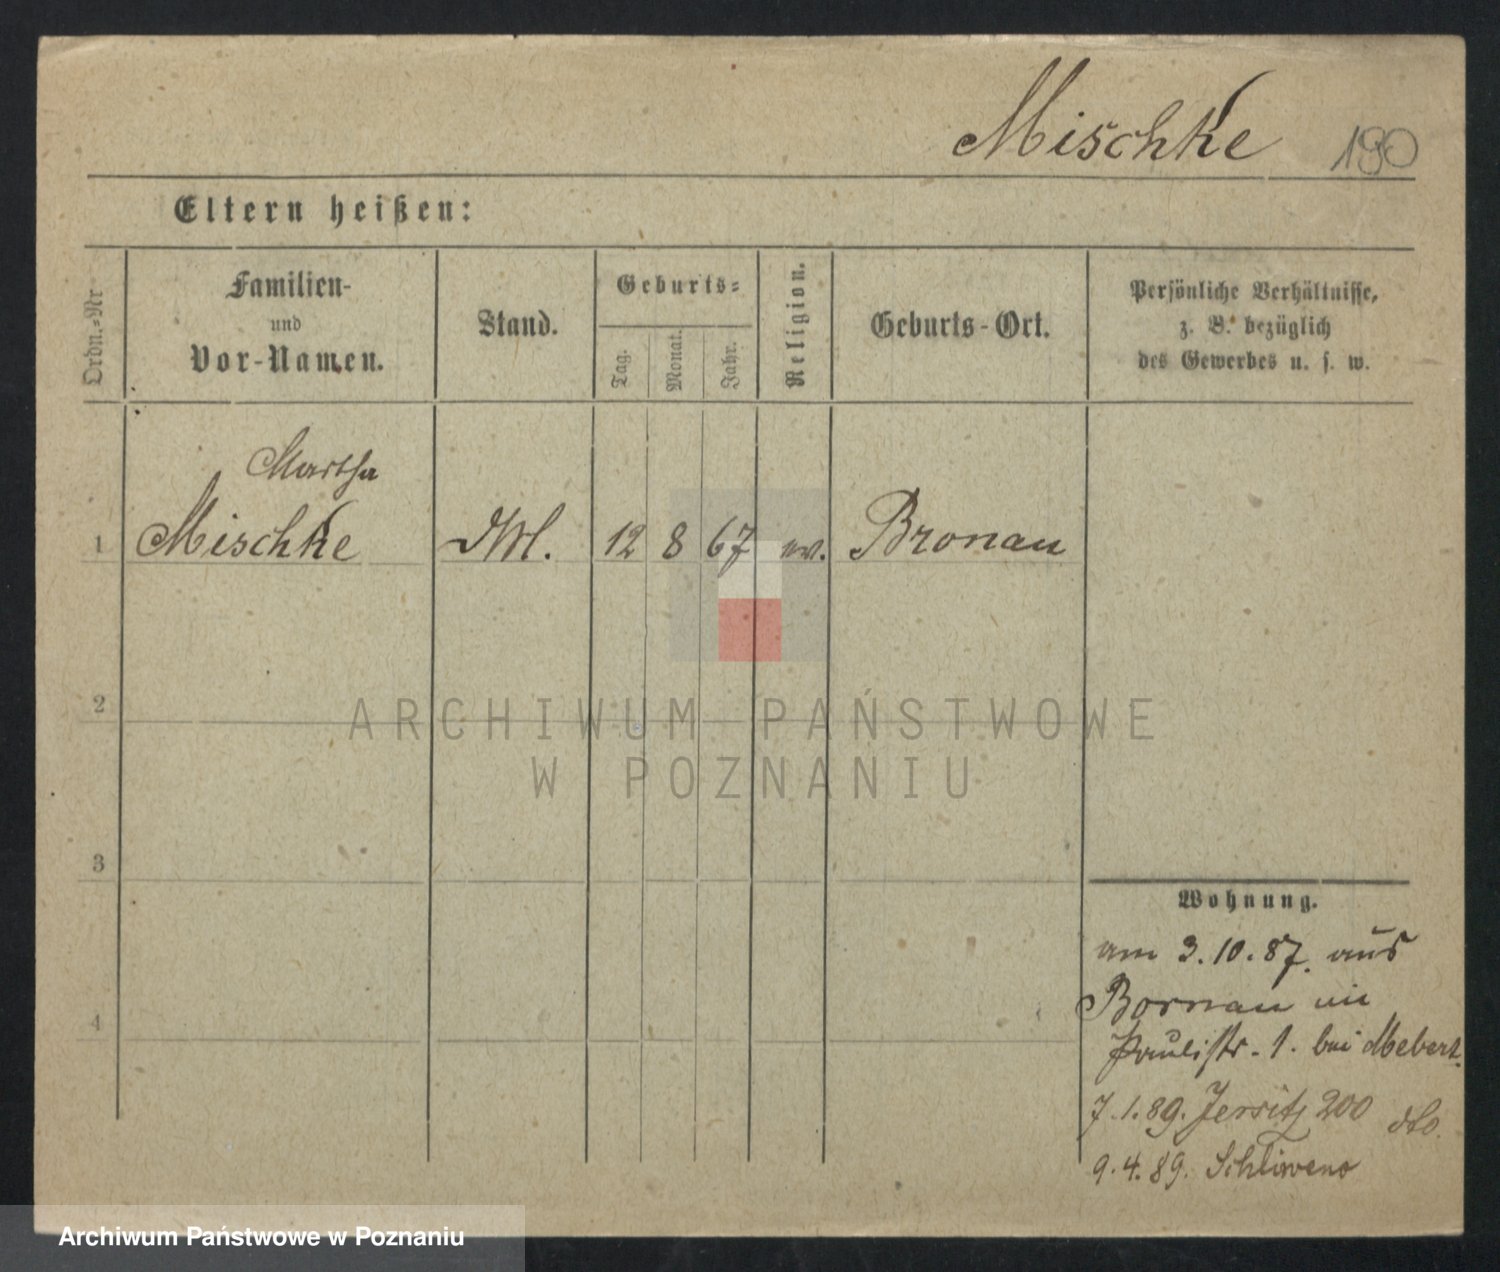 Mischke 190
Eltern heißen:
Ordn.=Nr
Familien-
und
Vor-Namen.
Stand.
Geburts=
Tag.
Monat.
Jahr.
Religion.
Geburts-Ort.
Persönliche Verhältnisse,
z. B. bezüglich
des Gewerbes u. s. w.
Martha
1 Mischke 12 8 67 ev. Bronau
2
ARCHIWUM PAŃSTWOWE
W POZNANIU
3
Wohnung.
am 3.10.87. aus
Bornau in
4
Paulistr. 1. bei
7.1.89. Jersitz 200 dto.
9.4.89.
Archiwum Państwowe w Poznaniu